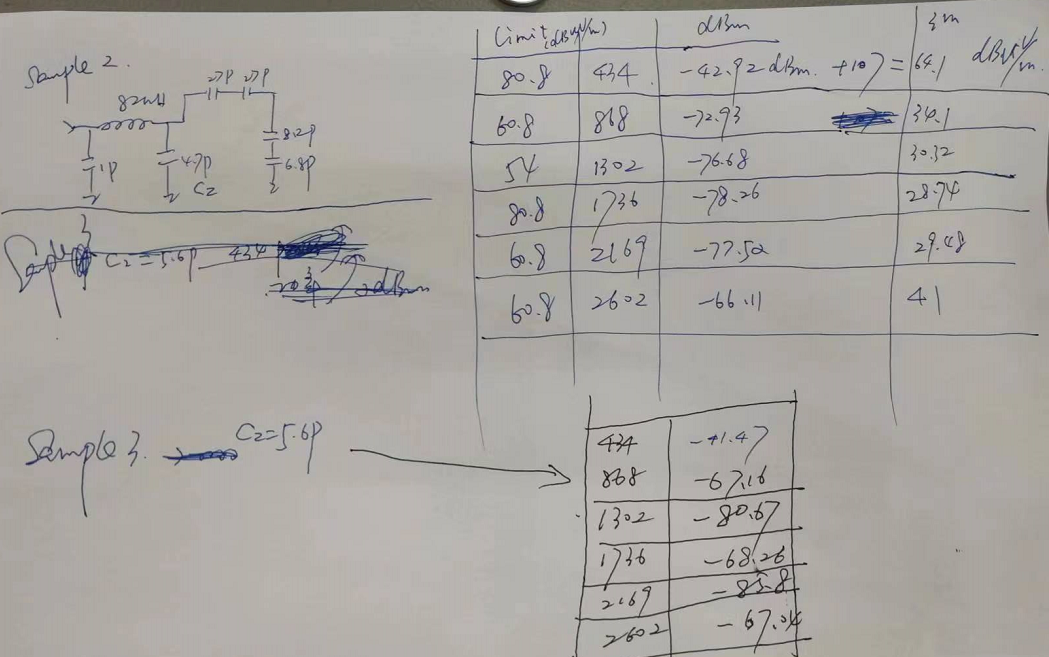 Sample 2.
82nH
27P 27P
1P
4.7P
C2
8.2P
6.8P
Limit (dBuV/m) dBm 3m
80.8 434 -42.92 dBm. +107 = 64.1 dBuV/m
60.8 868 -72.93 34.1
54 1302 -76.68 30.32
80.8 1736 -78.26 28.74
60.8 2169 -77.52 29.48
60.8 2602 -66.11 41
Sample C2=5.6P 434
dBm
Sample 3. C2=5.6P
434 -41.47
868 -67.16
1302 -80.67
1736 -68.26
2169 -83.8
2602 -67.04